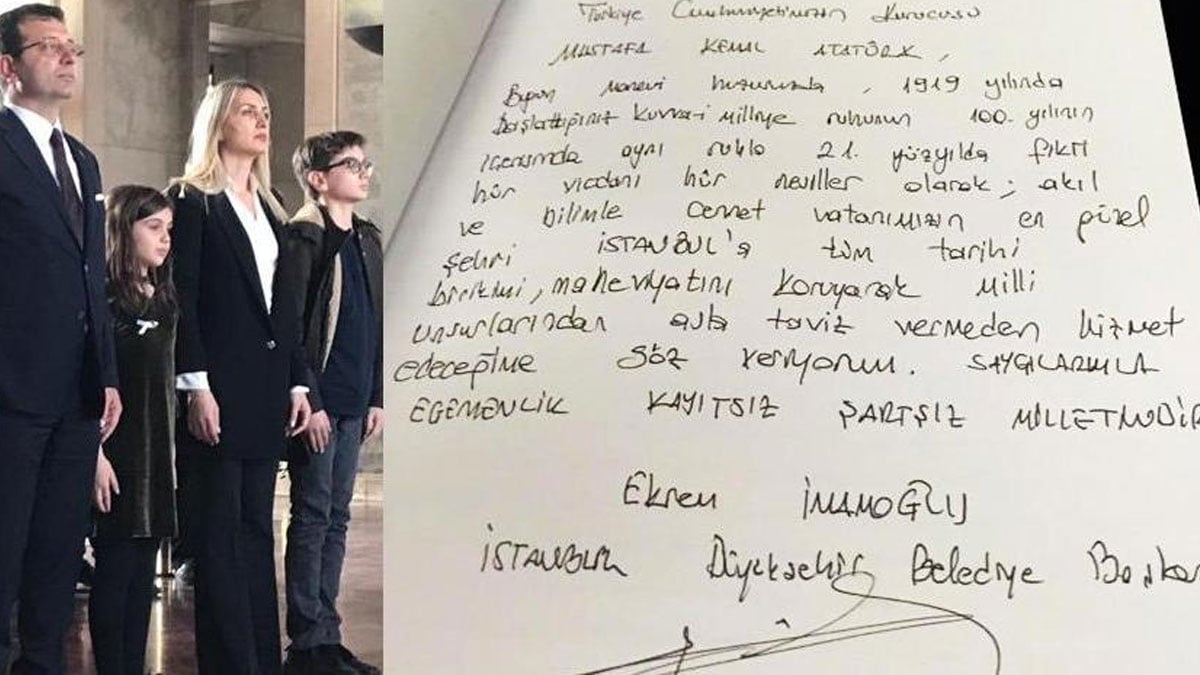 Türkiye Cumhuriyetimizin Kurucusu
MUSTAFA KEMAL ATATÜRK,
Bugün manevi huzurunuzda, 1919 yılında
Başlattığınız kuvva-i milliye ruhunun 100. yılının
içerisinde aynı ruhla 21. yüzyılda fikri
hür vicdanı hür nesiller olarak; akıl
ve bilimle cennet vatanımızın en güzel
şehri İSTANBUL'a tüm tarihi
birikimi, maneviyatını koruyarak milli
unsurlarından asla taviz vermeden hizmet
edeceğime söz veriyorum. SAYGILARIMLA
EGEMENLİK KAYITSIZ ŞARTSIZ MİLLETİNDİR
Ekrem İMAMOĞLU
İSTANBUL Büyükşehir Belediye Başkan